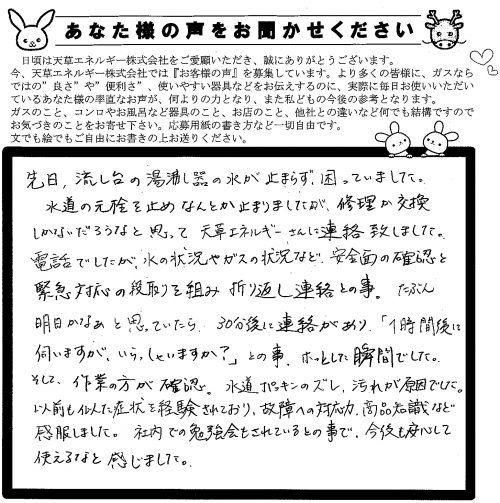 あなた様の声をお聞かせください
日頃は天草エネルギー株式会社をご愛顧いただき、誠にありがとうございます。
今、天草エネルギー株式会社では『お客様の声』を募集しています。より多くの皆様に、ガスなら
ではの"良さ"や"便利さ"、使いやすい器具などをお伝えするのに、実際に毎日お使いいただい
ているあなた様の率直なお声が、何よりの力となり、また私どもの今後の参考となります。
ガスのこと、コンロやお風呂など器具のこと、お店のこと、他社との違いなど何でも結構ですので
お気づきのことをお寄せ下さい。応募用紙の書き方など一切自由です。
文でも絵でもご自由にお書きの上お送りください。
先日、流し台の湯沸し器の水が止まらず、困っていました。
水道の元栓を止めなんとか止まりましたが、修理か交換
しかないだろうなと思って天草エネルギーさんに連絡致しました。
電話でしたが、水の状況やガスの状況など、安全面の確認と
緊急対応の段取りを組み折り返し連絡との事。たぶん
明日かなぁと思っていたら、30分後に連絡があり、「1時間後に
伺いますが、いらっしゃいますか?」との事、ホッとした瞬間でした。
そして、作業の方が確認。水道パッキンのズレ、汚れが原因でした。
以前も似た症状を経験されており、故障への対応力、商品知識など
感服しました。社内での勉強会もされているとの事で、今後も安心して
使えるなと感じました。